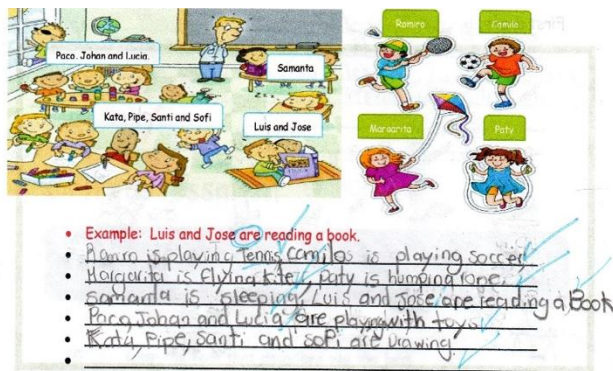 Paco. Johan and Lucia.
Samanta
Kata, Pipe, Santi and Sofi
Luis and Jose
Ramiro
Camilo
Margarita
Paty
• Example: Luis and Jose are reading a book.
• Ramiro is playing Tennis, Camilo is playing soccer
• Margarita is flying kite, Paty is humping rope.
• Samanta is sleeping, Luis and Jose are reading a Book
• Paco, Johan and Lucia are playing with toys
• Kata, Pipe, Santi and Sofi are drawing.
•